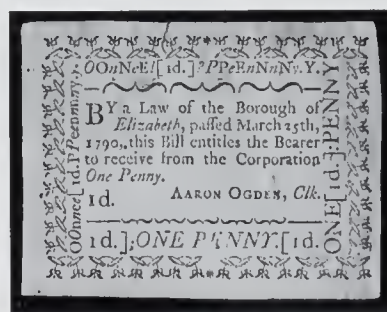 OOnNeE![1d.]?PPeEnNnNy.Y.
BY a Law of the Borough of
Elizabeth, paſſed March 25th,
1790, this Bill entitles the Bearer
to receive from the Corporation
One Penny.
1d. AARON OGDEN, Clk.
1d.];ONE PENNY.[1d.
OOnnee[1d.PPeennnny.y.
ONE[1d.];PENNY